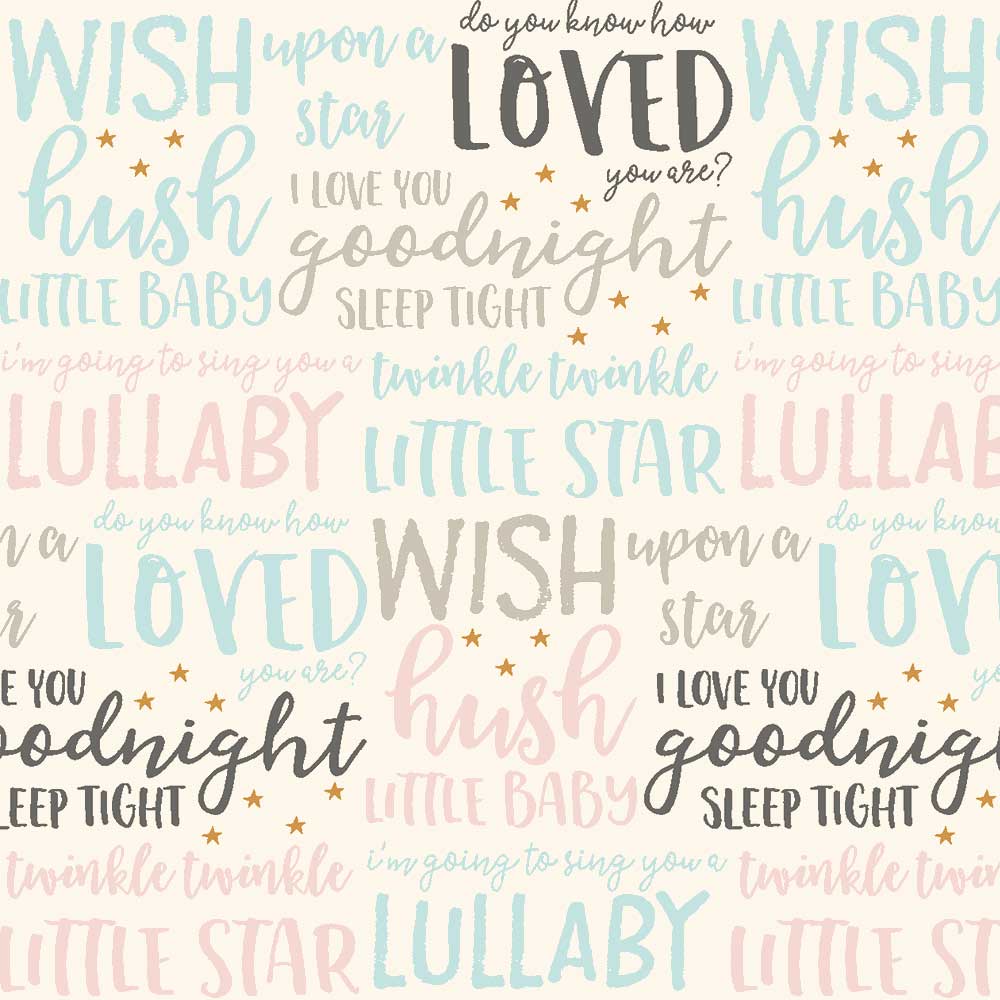 WISH upon a
star
do you know how
LOVED
you are?
WISH
hush
LITTLE BABY
I LOVE YOU
goodnight
SLEEP TIGHT
hush
LITTLE BABY
i'm going to sing you a
LULLABY
twinkle twinkle
LITTLE STAR
i'm going to sing
LULLAB
a
do you know how
LOVED
you are?
WISH upon a
star
do you know
LOV
E YOU
oodnight
LEEP TIGHT
hush
LITTLE BABY
I LOVE YOU
goodnig
SLEEP TIGHT
twinkle twinkle
LITTLE STAR
i'm going to sing you a
LULLABY
twinkle twin
LITTLE ST